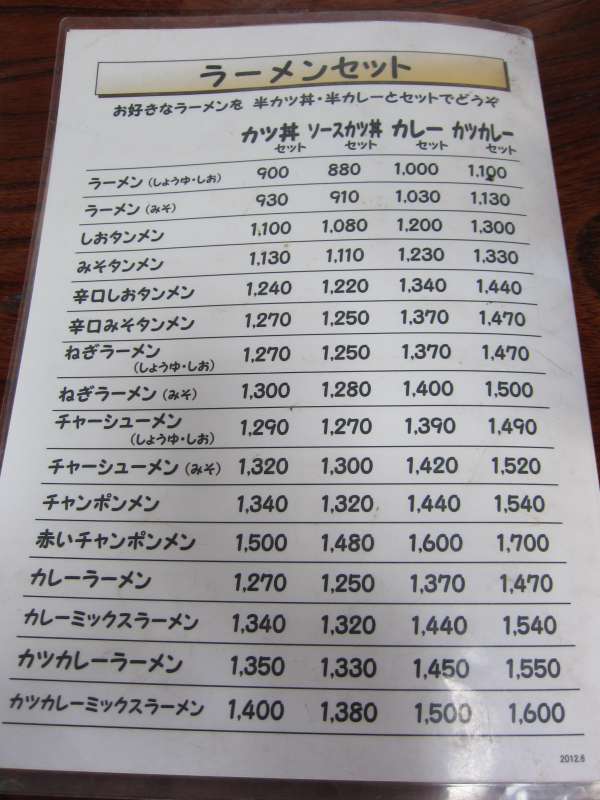 ラーメンセット
お好きなラーメンを 半カツ丼・半カレーとセットでどうぞ
カツ丼 ソースカツ丼 カレー カツカレー
セット セット セット セット
ラーメン(しょうゆ・しお) 900 880 1,000 1,100
ラーメン(みそ) 930 910 1,030 1,130
しおタンメン 1,100 1,080 1,200 1,300
みそタンメン 1,130 1,110 1,230 1,330
辛口しおタンメン 1,240 1,220 1,340 1,440
辛口みそタンメン 1,270 1,250 1,370 1,470
ねぎラーメン 1,270 1,250 1,370 1,470
(しょうゆ・しお)
ねぎラーメン(みそ) 1,300 1,280 1,400 1,500
チャーシューメン 1,290 1,270 1,390 1,490
(しょうゆ・しお)
チャーシューメン(みそ) 1,320 1,300 1,420 1,520
チャンポンメン 1,340 1,320 1,440 1,540
赤いチャンポンメン 1,500 1,480 1,600 1,700
カレーラーメン 1,270 1,250 1,370 1,470
カレーミックスラーメン 1,340 1,320 1,440 1,540
カツカレーラーメン 1,350 1,330 1,450 1,550
カツカレーミックスラーメン 1,400 1,380 1,500 1,600
2012.6